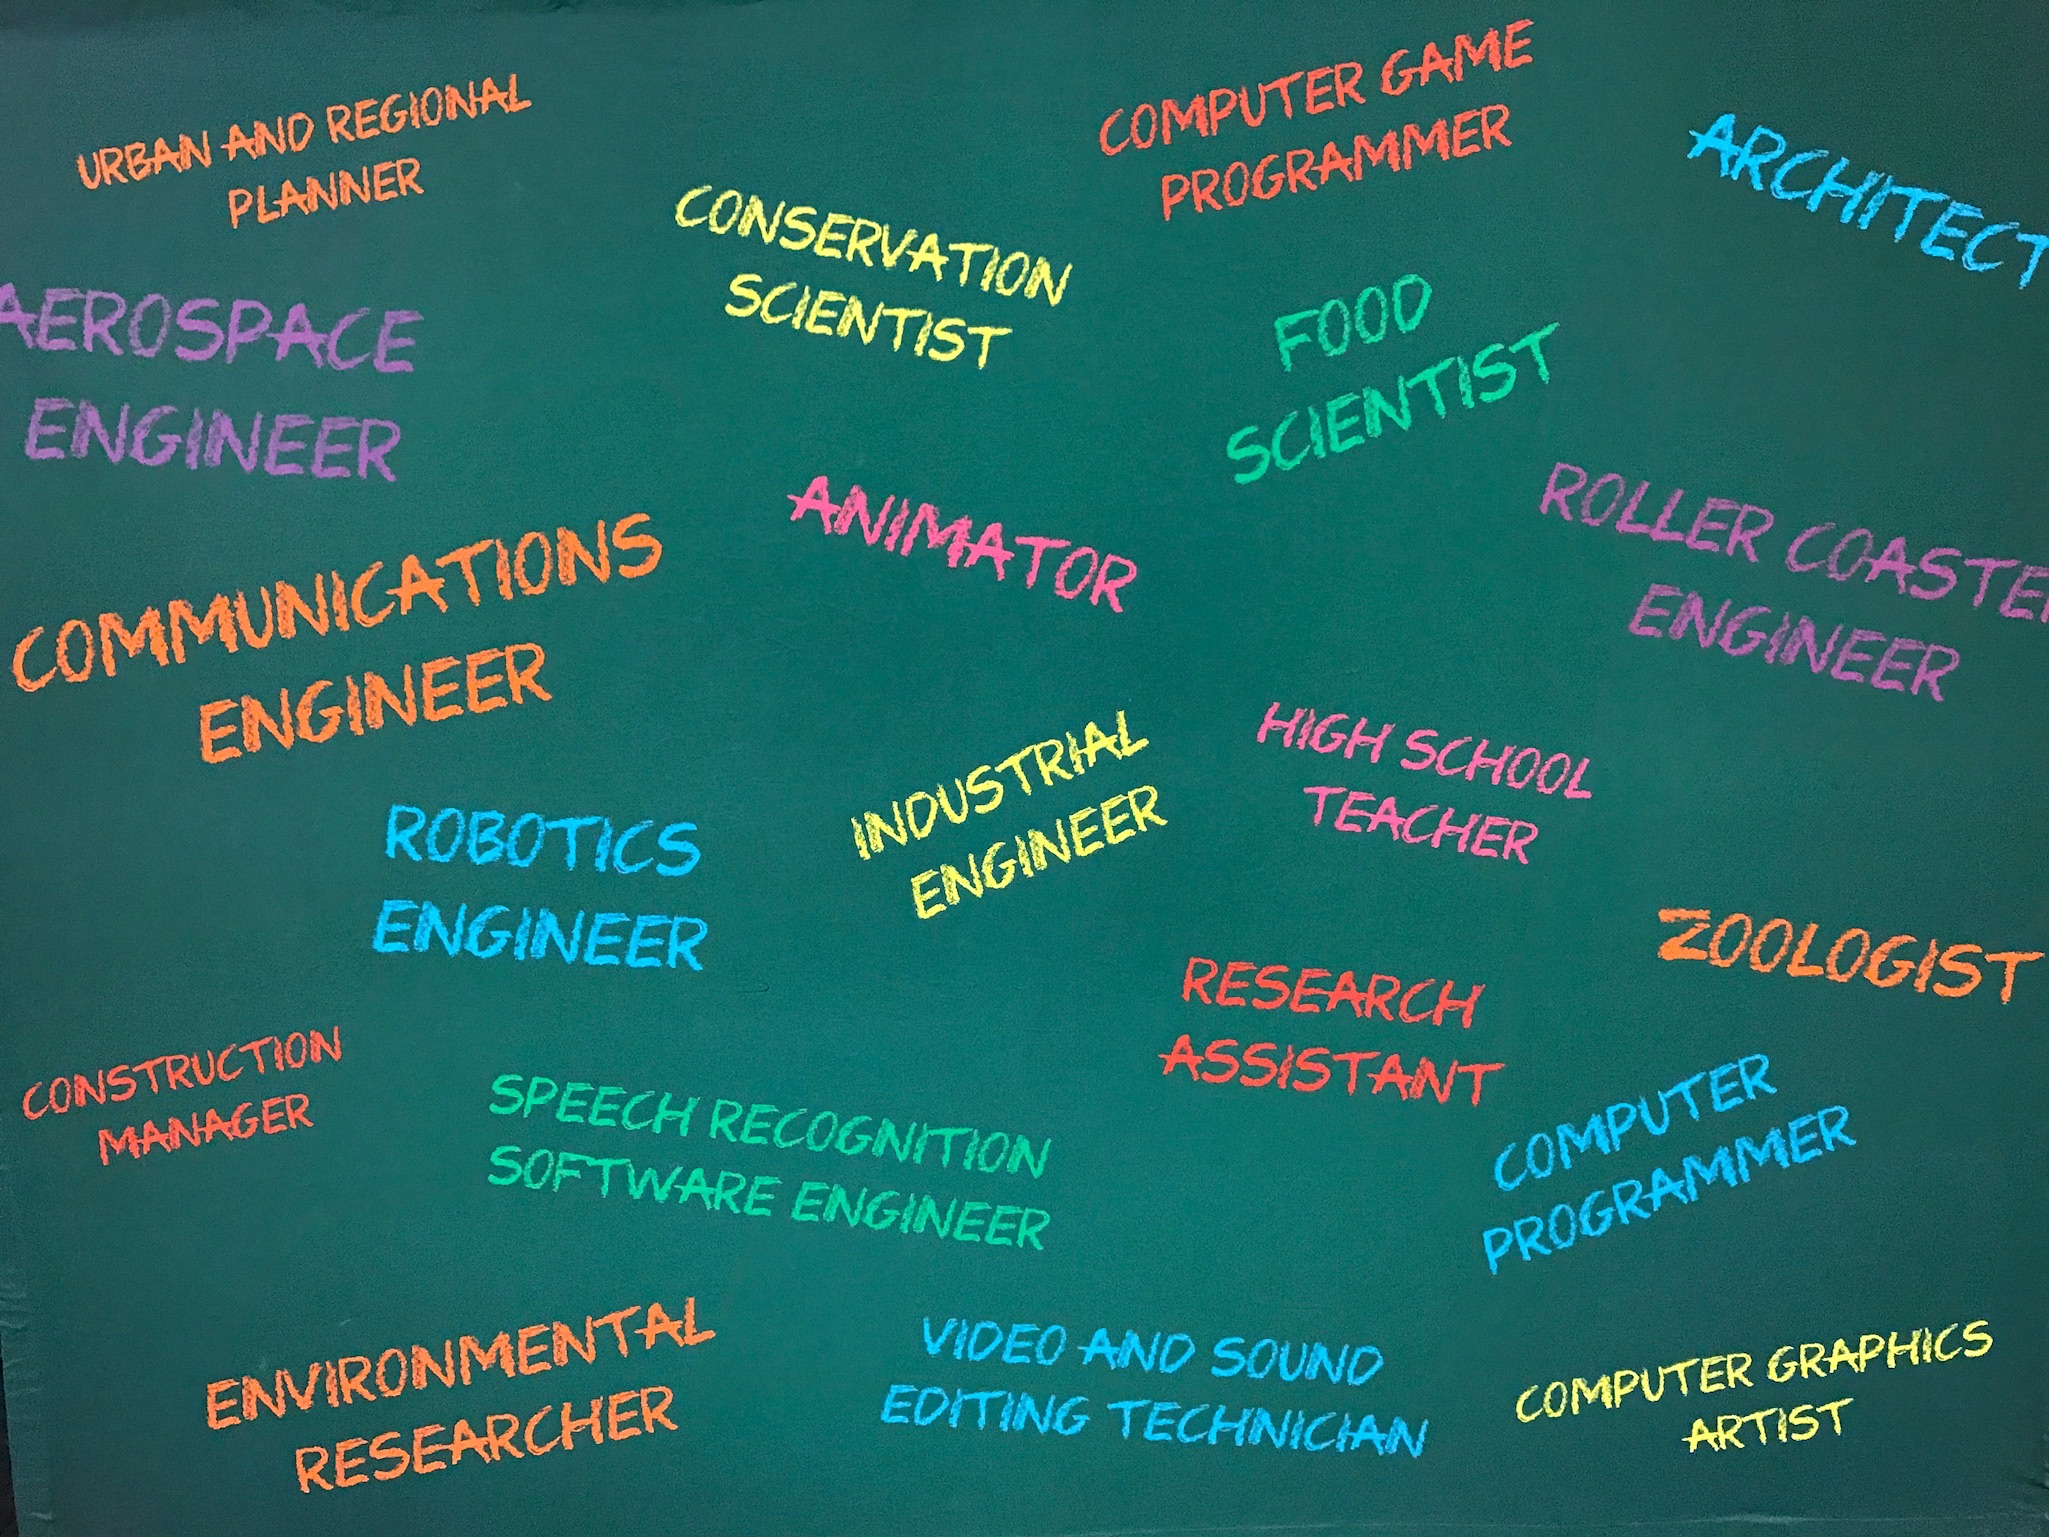 URBAN AND REGIONAL
PLANNER
COMPUTER GAME
PROGRAMMER
ARCHITECT
CONSERVATION
SCIENTIST
AEROSPACE
ENGINEER
FOOD
SCIENTIST
ANIMATOR
ROLLER COASTER
ENGINEER
COMMUNICATIONS
ENGINEER
INDUSTRIAL
ENGINEER
HIGH SCHOOL
TEACHER
ROBOTICS
ENGINEER
ZOOLOGIST
RESEARCH
ASSISTANT
CONSTRUCTION
MANAGER
SPEECH RECOGNITION
SOFTWARE ENGINEER
COMPUTER
PROGRAMMER
ENVIRONMENTAL
RESEARCHER
VIDEO AND SOUND
EDITING TECHNICIAN
COMPUTER GRAPHICS
ARTIST